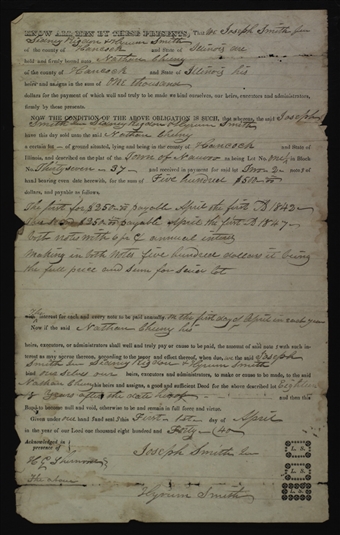 KNOW ALL MEN BY THESE PRESENTS, That we Joseph Smith Jr
Sidney Rigdon & Hyrum Smith
of the county of Hancock and State of Illinois are
held and firmly bound unto Nathan Cheney
of the county of Hancock and State of Illinois his
heirs and assigns in the sum of One thousand
dollars for the payment of which well and truly to be made we bind ourselves, our heirs, executors and administrators,
firmly by these presents.
NOW THE CONDITION OF THE ABOVE OBLIGATION IS SUCH, that whereas, the said Joseph
Smith Jr Sidney Rigdon & Hyrum Smith
have this day sold unto the said Nathan Cheney
a certain lot of ground situated, lying and being in the county of Hancock and State of
Illinois, and described on the plat of the Town of Nauvoo as being Lot No. one in Block
No. Thirty seven or 37 and received in payment for said lot Two 2 notes of
hand bearing even date herewith, for the sum of Five hundred $500
dollars, and payable as follows.
The first for $250 payable April the first 1842
$250 payable April the first 1847
both notes with 6 pr C annual interest
Making in both Notes five hundred dollars it being
the full price and sum for said lot
The interest for each and every note to be paid annually on the first day of April in each year
Now if the said Nathan Cheney his
heirs, executors, or administrators shall well and truly pay or cause to be paid, the amount of said notes with such interest as may accrue thereon, according to the tenor and effect thereof, when due, we the said Joseph
Smith Jr Sidney Rigdon & Hyrum Smith
bind our selves our heirs, executors, and administrators, to make or cause to be made, to the said
Nathan Cheney his heirs and assigns, a good and sufficient Deed for the above described lot
years after the date hereof and then this
Bond to become null and void, otherwise to be and remain in full force and virtue.
Given under our hand and seal this First 1st day of April
in the year of our Lord one thousand eight hundred and Forty 40
Acknowledged in
presence of
Joseph Smith Jr L. S.
L. S.
Hyrum Smith L. S.